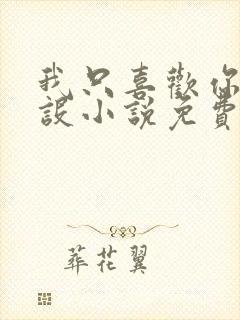 我只喜歡你
設小說免費
葬花翼